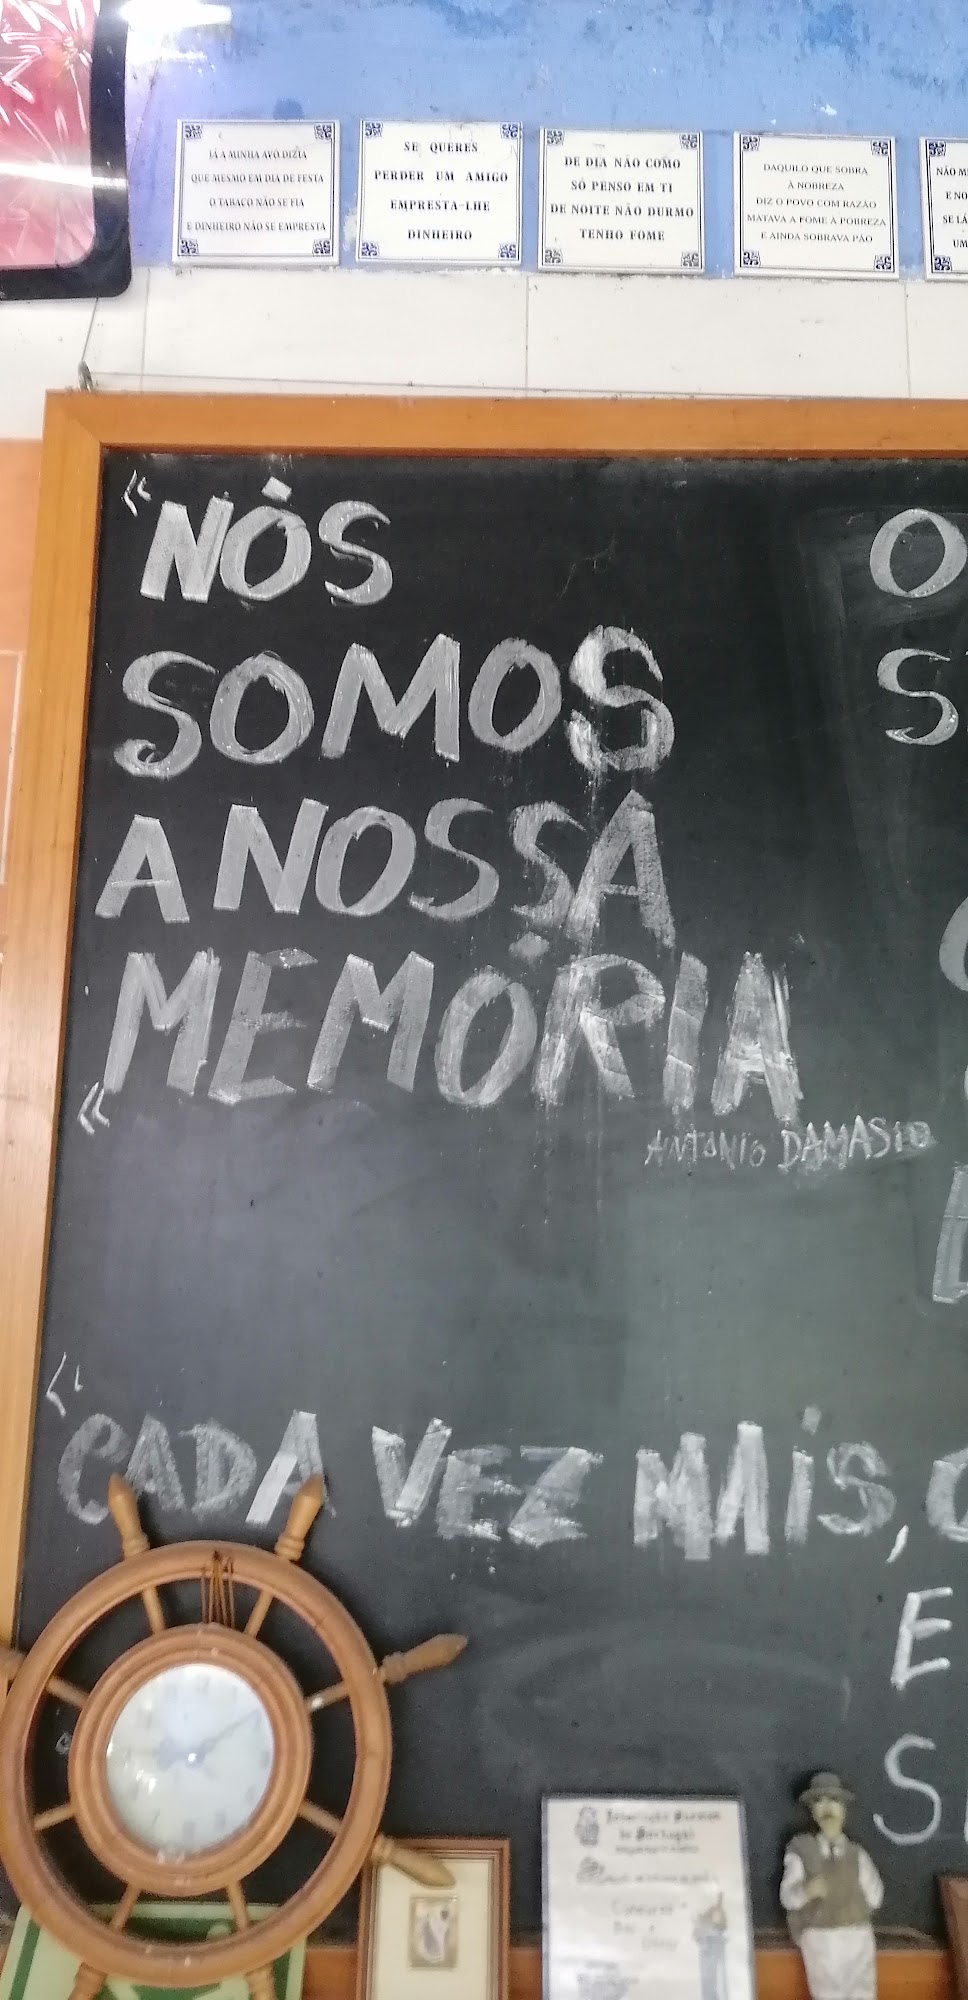 JÁ A MINHA AVÓ DIZIA
QUE MESMO EM DIA DE FESTA
O TABACO NÃO SE FIA
E DINHEIRO NÃO SE EMPRESTA
SE QUERES
PERDER UM AMIGO
EMPRESTA-LHE
DINHEIRO
DE DIA NÃO COMO
SÓ PENSO EM TI
DE NOITE NÃO DURMO
TENHO FOME
DAQUILO QUE SOBRA
À NOBREZA
DIZ O POVO COM RAZÃO
MATAVA A FOME À POBREZA
E AINDA SOBRAVA PÃO
NÃO
E
SE
UM
"NÓS
SOMOS
A NOSSA
MEMÓRIA
"
ANTONIO DAMASIO
"CADA VEZ MAIS,
E
de Portugal